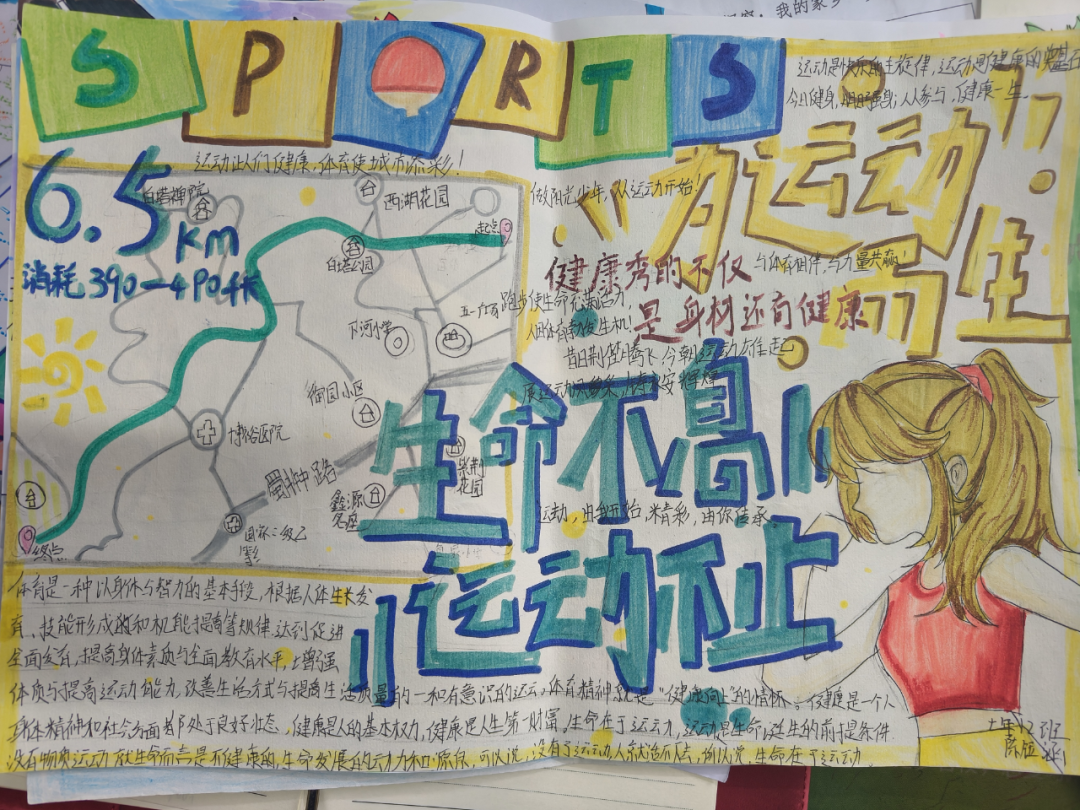 SPORTS
运动是快乐的主旋律,运动是健康的
今日健身,明日强身;人人参与,健康一生.
运动让人们健康,体育使城市添彩!
6.5km
消耗390—490千卡
白塔禅院
西湖花园
起点
白塔公园
下河小学
御园小区
博裕医院
蜀 路
鑫源名座
紫荆花园
国家二级
终点
做阳光少年,从运动开始!
"为运动而生"
健康秀的不仅
是身材还有健康
与体育相伴,与力量共赢!
跑步使生命充满活力
生命不息
运动不止
运动,由我开始,精彩,由你传承.
体育是一种以身体与智力的基本手段,根据人体生长发
育、技能形成和机能提高等规律,达到促进
全面发育,提高身体素质与全面教育水平,增强
体质与提高运动能力,改善生活方式与提高生活质量的一种有意识的运动,体育精神就是"健康向上"的情怀。健康是一个人
身体精神和社会方面都处于良好状态,健康是人的基本权力,健康是人生第一财富。生命在于运动,运动是生命诞生的前提条件
没有物质运动就生命而言是不健康的,生命发展的动力和源泉,可以说,没有了运动人就活不下去,所以说,生命在于运动.